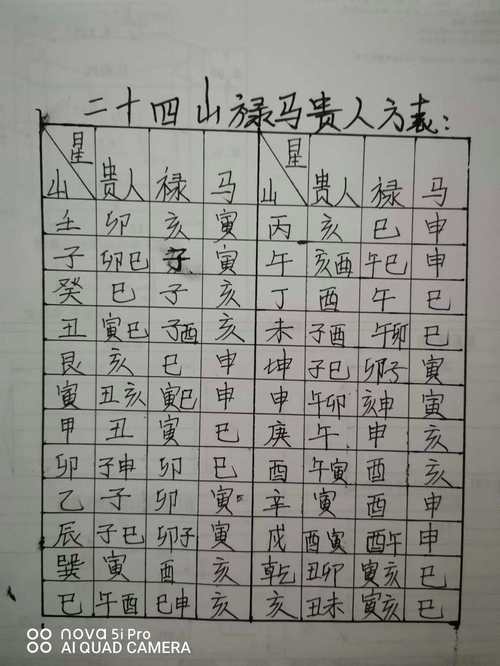 二十四山禄马贵人方表:
星 山 贵人 禄 马 星 山 贵人 禄 马
壬 卯 亥 寅 丙 亥 巳 申
子 卯巳 子 寅 午 亥酉 午巳 申
癸 巳 子 亥 丁 酉 午 巳
丑 寅巳 子酉 亥 未 子酉 午卯 巳
艮 亥 巳 申 坤 子巳 卯子 寅
寅 丑亥 寅巳 申 申 午卯 亥申 寅
甲 丑 寅 巳 庚 午 申 亥
卯 子申 卯 巳 酉 午寅 酉 亥
乙 子 卯 寅 辛 寅 酉 申
辰 子巳 卯子 寅 戌 酉寅 酉午 申
巽 寅 酉 亥 乾 丑卯 寅亥 巳
巳 午酉 巳申 亥 亥 丑未 寅亥 巳
nova 5i Pro
AI QUAD CAMERA